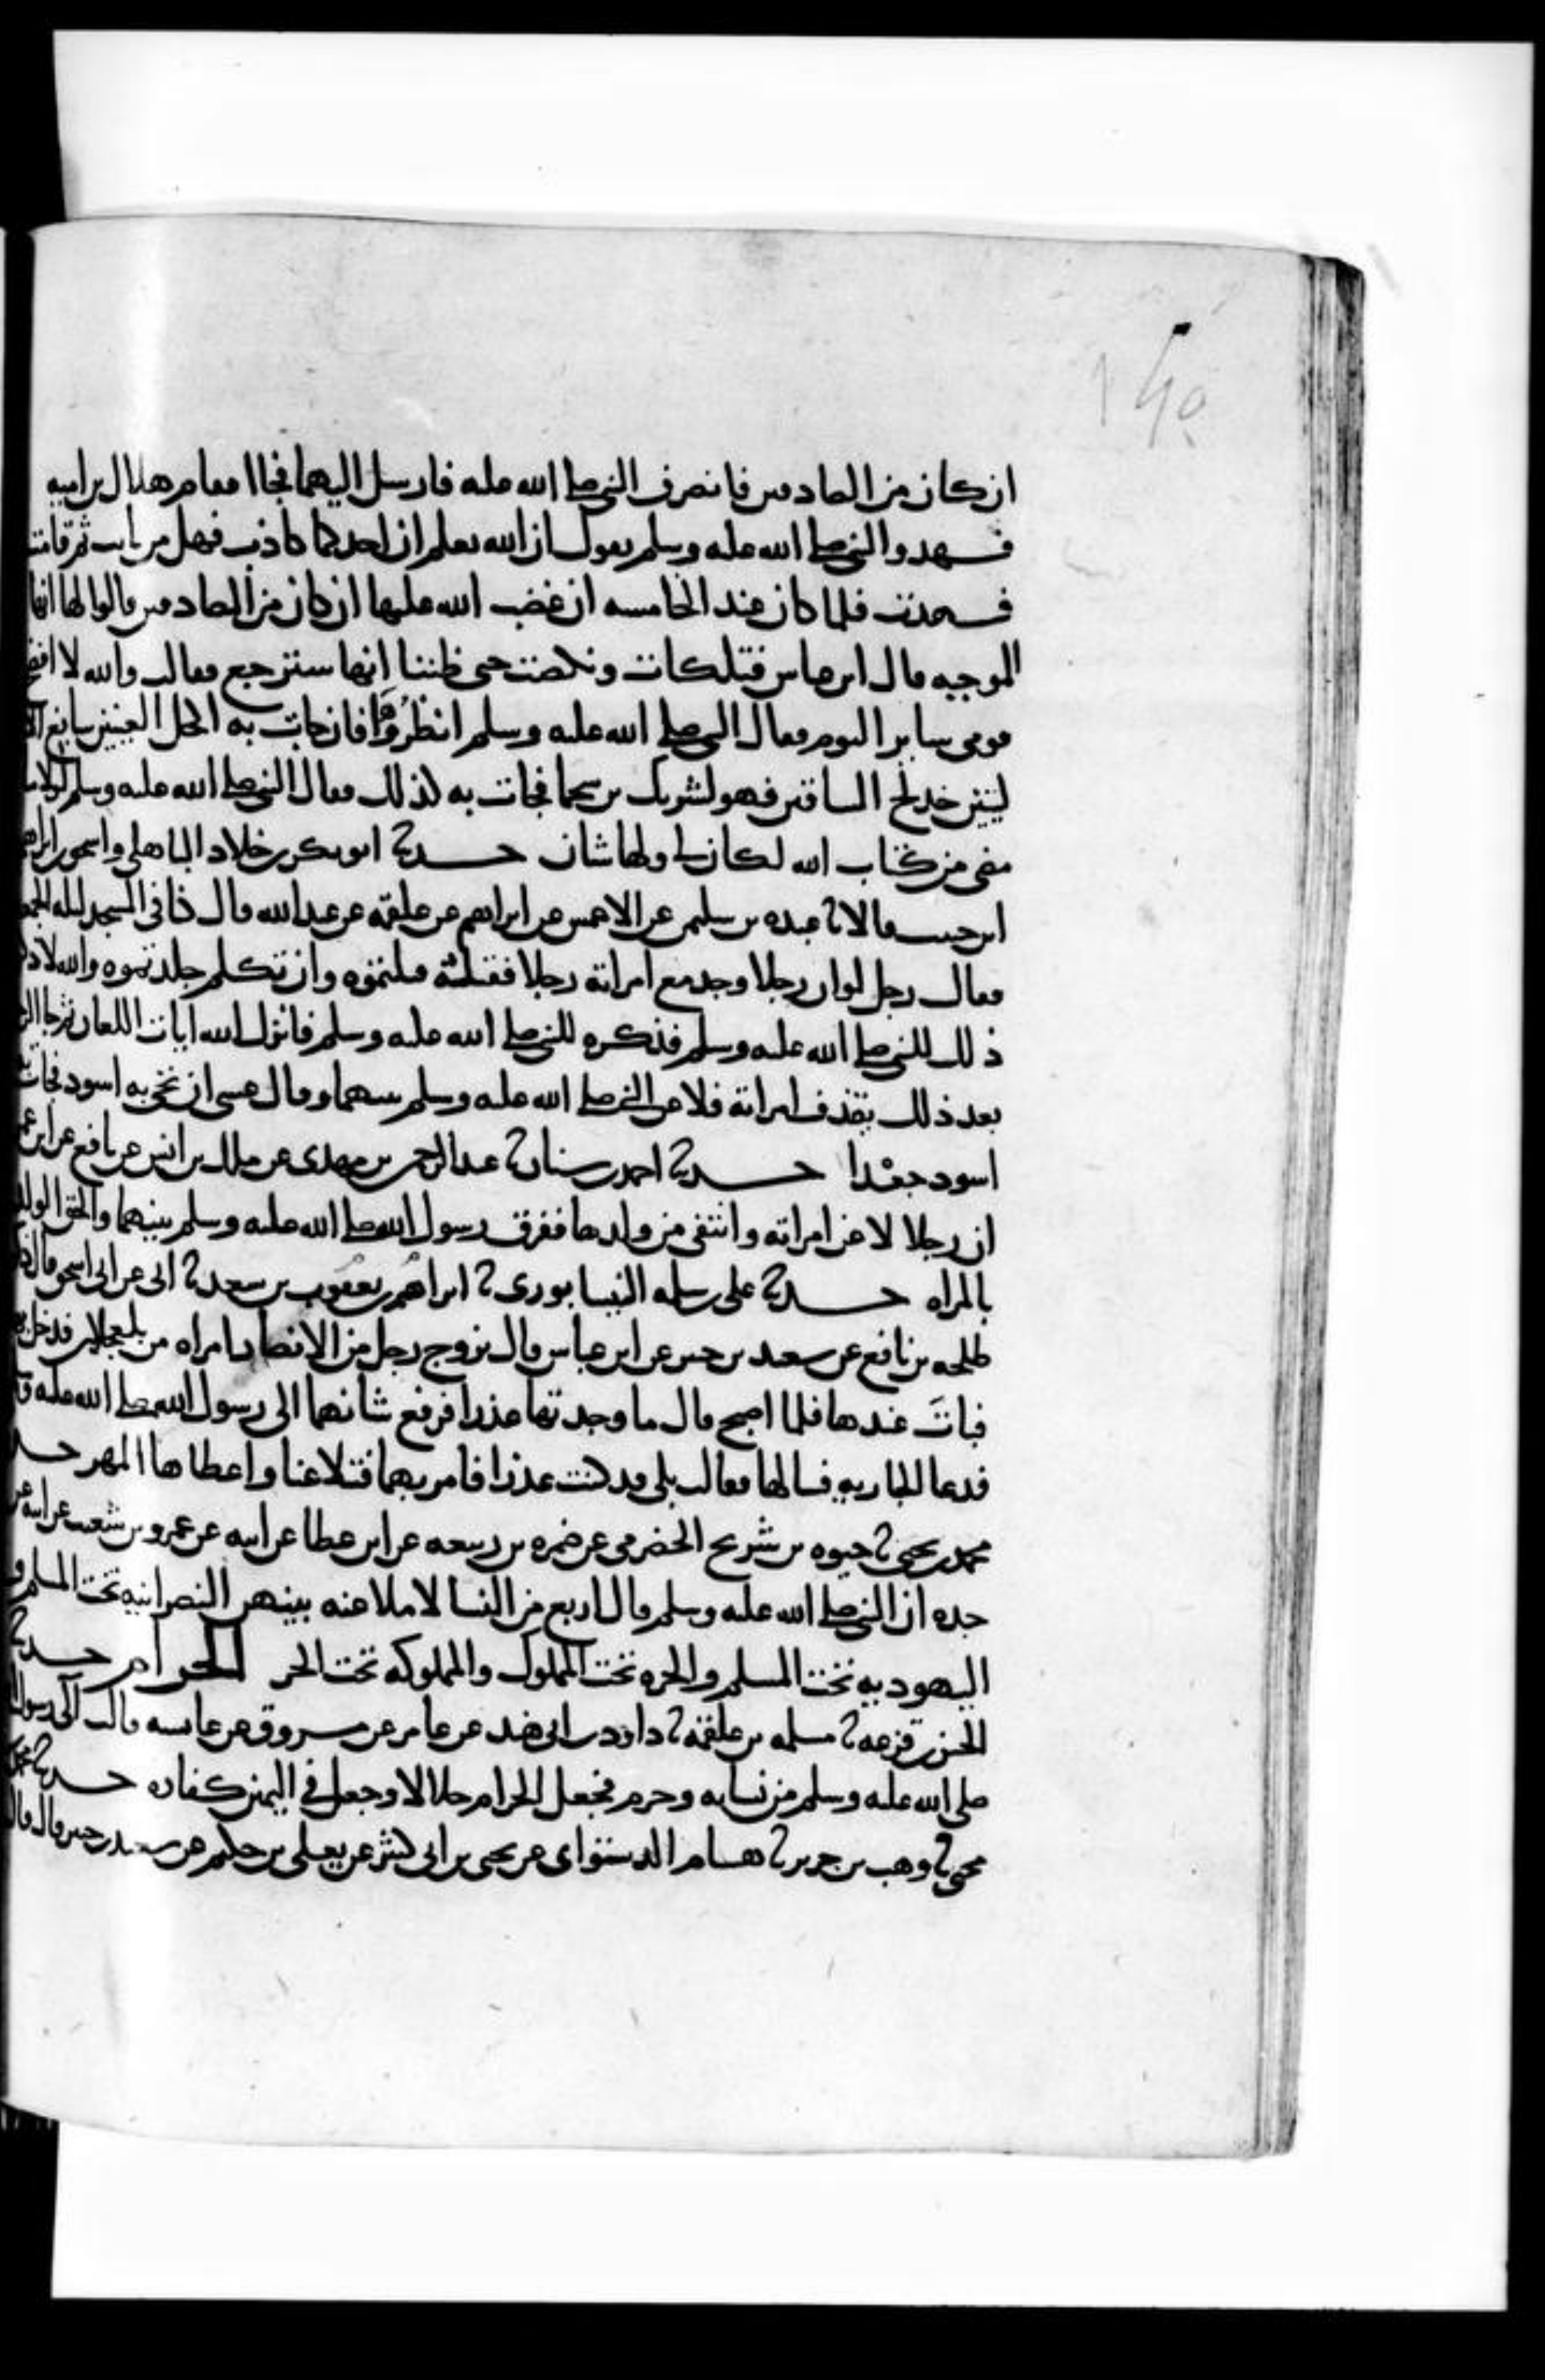 ١٤٥
ان كان من الصادقين فانصرف النبي صلى الله عليه فارسل اليهما فجاا فقام هلال بن اميه
فشهد والنبي صلى الله عليه وسلم يقول ان الله يعلم ان احدكما كاذب فهل من تايب ثم قامت
فشهدت فلما كان عند الخامسه ان غضب الله عليها ان كان من الصادقين قالوا لها انها
الموجبه قال ابن عباس فتلكات ونكصت حتى ظننا انها سترجع فقالت والله لا افضح
قومي ساير اليوم فقال النبي صلى الله عليه وسلم انظروها فان جات به اكحل العينين سابغ
ليتين خدلج الساقين فهو لشريك بن سحما فجات به كذلك فقال النبي صلى الله عليه وسلم لولا ما
مضى من كتاب الله لكان لي ولها شان حدثنا ابو بكر بن خلاد الباهلي واسحق بن ابراهيم
ابن حبيب قالا ثنا عبده بن سليمن عن الاعمش عن ابراهيم عن علقمه عن عبد الله قال كنا في المسجد ليله الجمعه
فقال رجل لو ان رجلا وجد مع امراته رجلا فقتله قتلتموه وان تكلم جلدتموه والله لاذكرن
ذلك للنبي صلى الله عليه وسلم فذكره للنبي صلى الله عليه وسلم فانزل الله ايات اللعان ثم جا الرجل
بعد ذلك يقذف امراته فلاعن النبي صلى الله عليه وسلم بينهما وقال عسى ان تجي به اسود فجات به
اسود جعدا حدثنا احمد بن سنان ثنا عبد الرحمن بن مهدي عن ملك بن انس عن نافع عن ابن عمر
ان رجلا لاعن امراته وانتفى من ولدها ففرق رسول الله صلى الله عليه وسلم بينهما والحق الولد
بالمراه حدثنا علي بن سلمه النيسابوري ثنا ابراهيم بن يعقوب بن سعد ثنا ابي عن ابن اسحق قال ذكر
طلحه بن نافع عن سعيد بن جبير عن ابن عباس قال تزوج رجل من الانصار امراه من بلعجلان فدخل بها
فبات عندها فلما اصبح قال ما وجدتها عذرا فرفع شانهما الى رسول الله صلى الله عليه
فدعا الجاريه فسالها فقالت بلى قد كنت عذرا فامر بهما فتلاعنا واعطاها المهر حدثنا
محمد بن يحيى ثنا حيوه بن شريح الحضرمي عن ضمره بن ربيعه عن ابن عطا عن ابيه عن عمرو بن شعيب عن ابيه عن
جده ان النبي صلى الله عليه وسلم قال اربع من النسا لا ملاعنه بينهن النصرانيه تحت المسلم و
اليهوديه تحت المسلم والحره تحت المملوك والمملوكه تحت الحر الحرام حدثنا
الحسن بن قزعه ثنا مسلمه بن علقمه ثنا داود بن ابي هند عن عامر عن مسروق عن عائشه قالت آلى رسول الله
صلى الله عليه وسلم من نسايه وحرم فجعل الحرام حلالا وجعل في اليمين كفاره حدثنا محمد
يحيى ثنا وهب بن جرير ثنا هشام الدستواي عن يحيى بن ابي كثير عن يعلى بن حكيم عن سعيد بن جبير قال قال